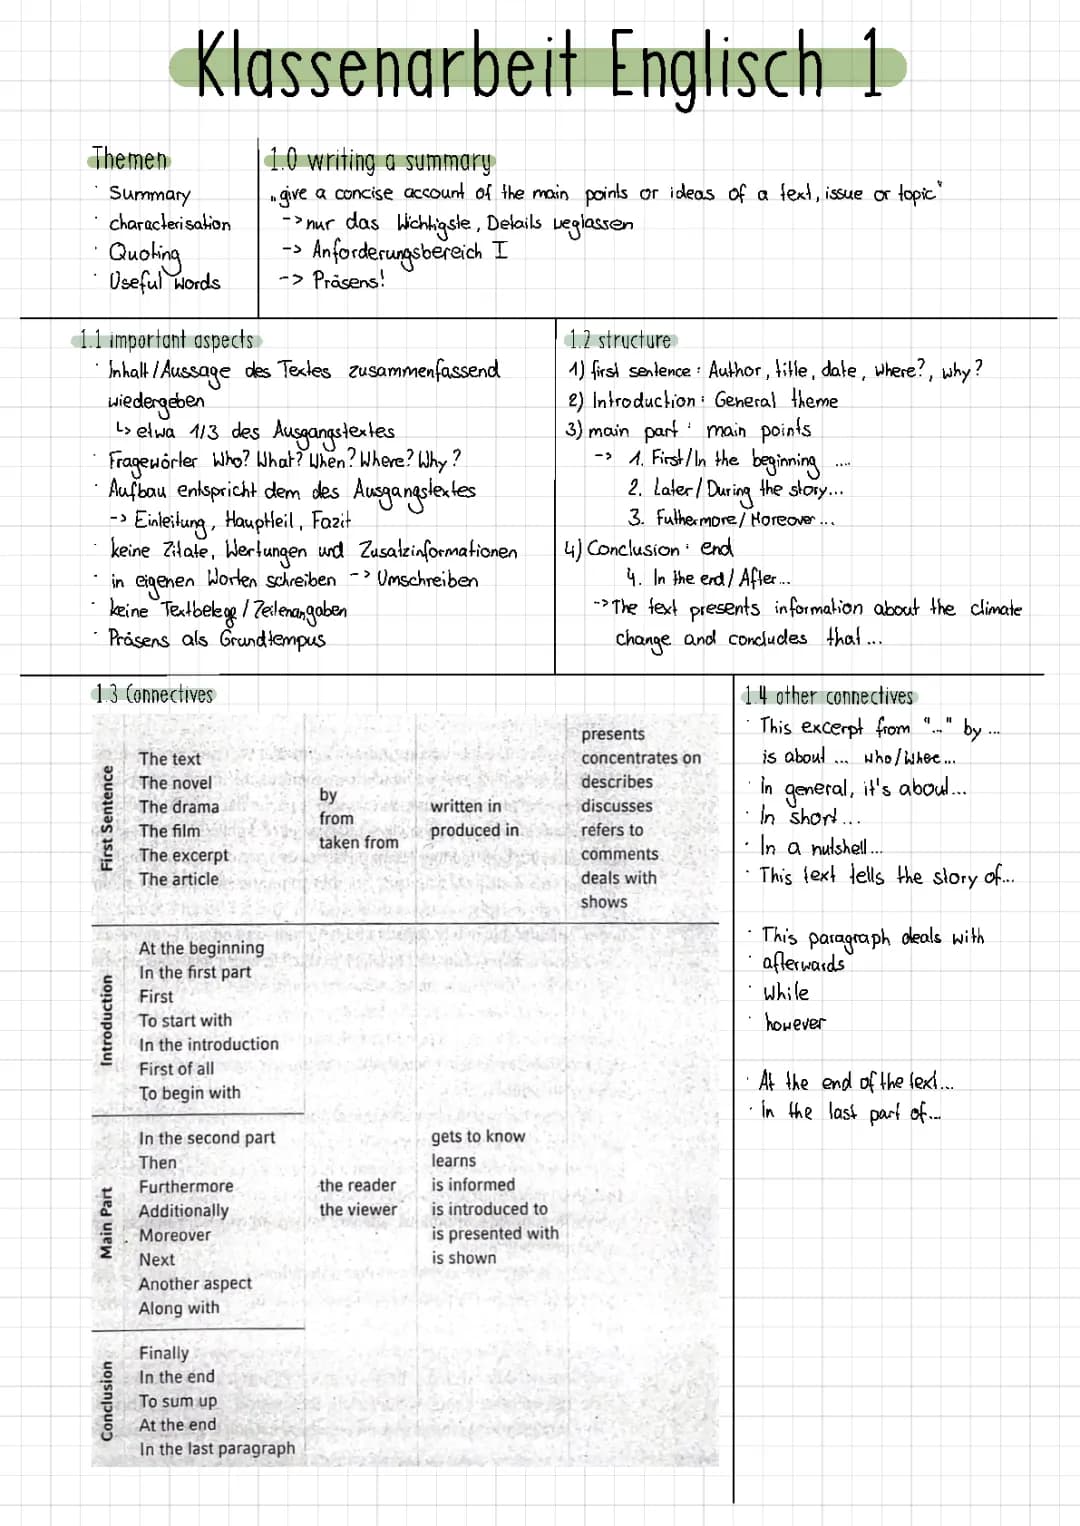 Klassenarbeit Englisch 1
Themen
· Summary
· characterisation
· Quoting
· Useful words
1.0 writing a summary
„give a concise account of the main points or ideas of a text, issue or topic"
-> nur das Wichtigste, Details weglassen
-> Anforderungsbereich I
-> Präsens!
1.1 important aspects
· Inhalt/Aussage des Textes zusammenfassend
wiedergeben
↳ etwa 1/3 des Ausgangstextes
· Fragewörter Who? What? When? Where? Why?
· Aufbau entspricht dem des Ausgangstextes
-> Einleitung, Hauptteil, Fazit
· keine Zitate, Wertungen und Zusatzinformationen
· in eigenen Worten schreiben -> Umschreiben
· keine Textbelege / Zeilenangaben
· Präsens als Grundtempus
1.2 structure
1) first sentence: Author, title, date, where?, why?
2) Introduction: General theme
3) main part: main points
-> 1. First/In the beginning ....
2. Later/During the story...
3. Futhermore/Moreover...
4) Conclusion: end
4. In the end/After...
-> The text presents information about the climate
change and concludes that...
1.3 Connectives
First Sentence
The text
The novel
The drama
The film
The excerpt
The article
by
from
taken from
written in
produced in
presents
concentrates on
describes
discusses
refers to
comments
deals with
shows
Introduction
At the beginning
In the first part
First
To start with
In the introduction
First of all
To begin with
Main Part
In the second part
Then
Furthermore
Additionally
Moreover
Next
Another aspect
Along with
the reader
the viewer
gets to know
learns
is informed
is introduced to
is presented with
is shown
Conclusion
Finally
In the end
To sum up
At the end
In the last paragraph
1.4 other connectives
· This excerpt from "..." by ...
is about ... who/where...
· In general, it's about...
· In short...
· In a nutshell...
· This text tells the story of...
· This paragraph deals with
· afterwards
· while
· however
· At the end of the text...
· In the last part of...